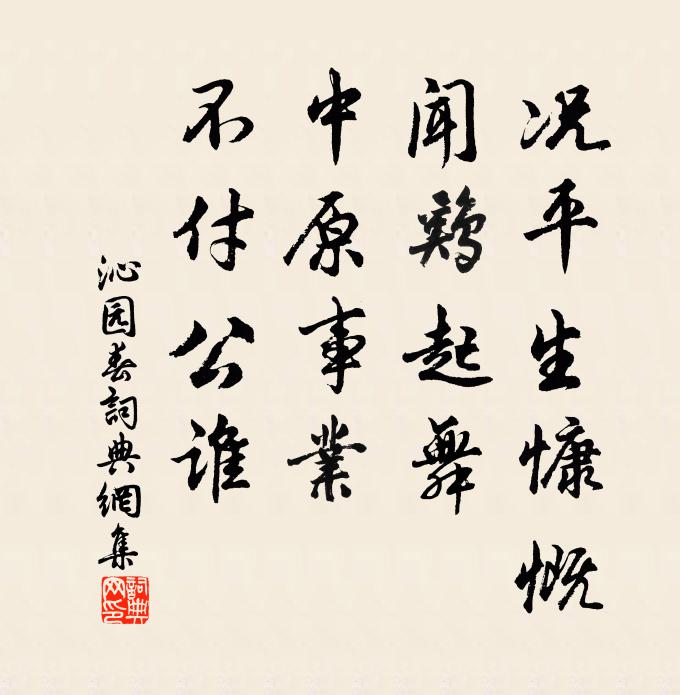 况平生慷慨
闻鷄起舞
中原事業
不付公谁
沁园春詞典網集
詞典网印